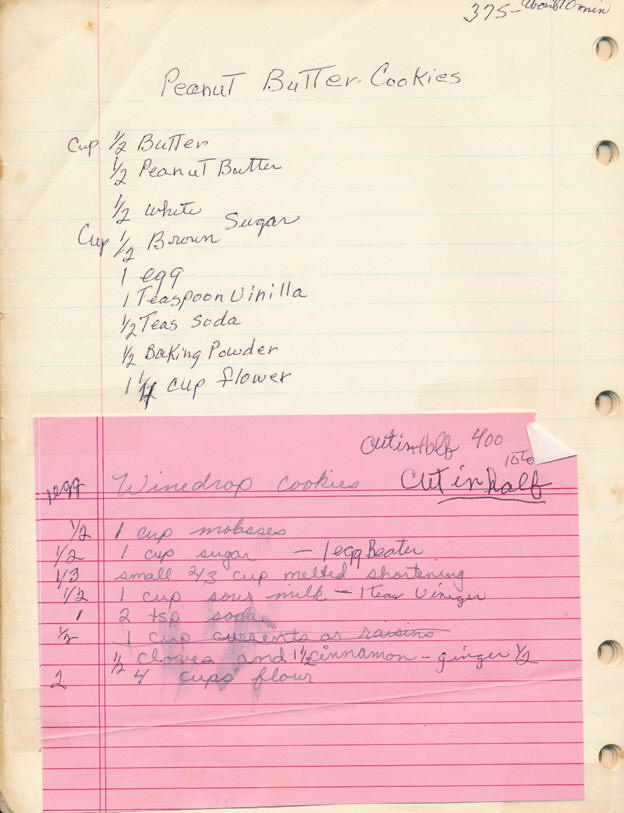 375 - about 10 min
Peanut Butter Cookies
Cup 1/2 Butter
1/2 Peanut Butter
1/2 white
Sugar
Cup 1/2 Brown
1 egg
1 Teaspoon Vinilla
1/2 Teas Soda
1/2 Baking Powder
1 1/4 cup flower
Cut in Half 400
10 to
1 egg Winedrop cookies Cut in half
1/2 1 cup molasses
1/2 1 cup sugar — 1 egg Beater
1/3 small 2/3 cup melted shortening
1/2 1 cup sour milk — 1 Teas Viniger
1 2 tsp soda
1/2 1 cup currents or raisins
1/2 cloves and 1 1/2 cinnamon - ginger 1/2
2 4 cups flour